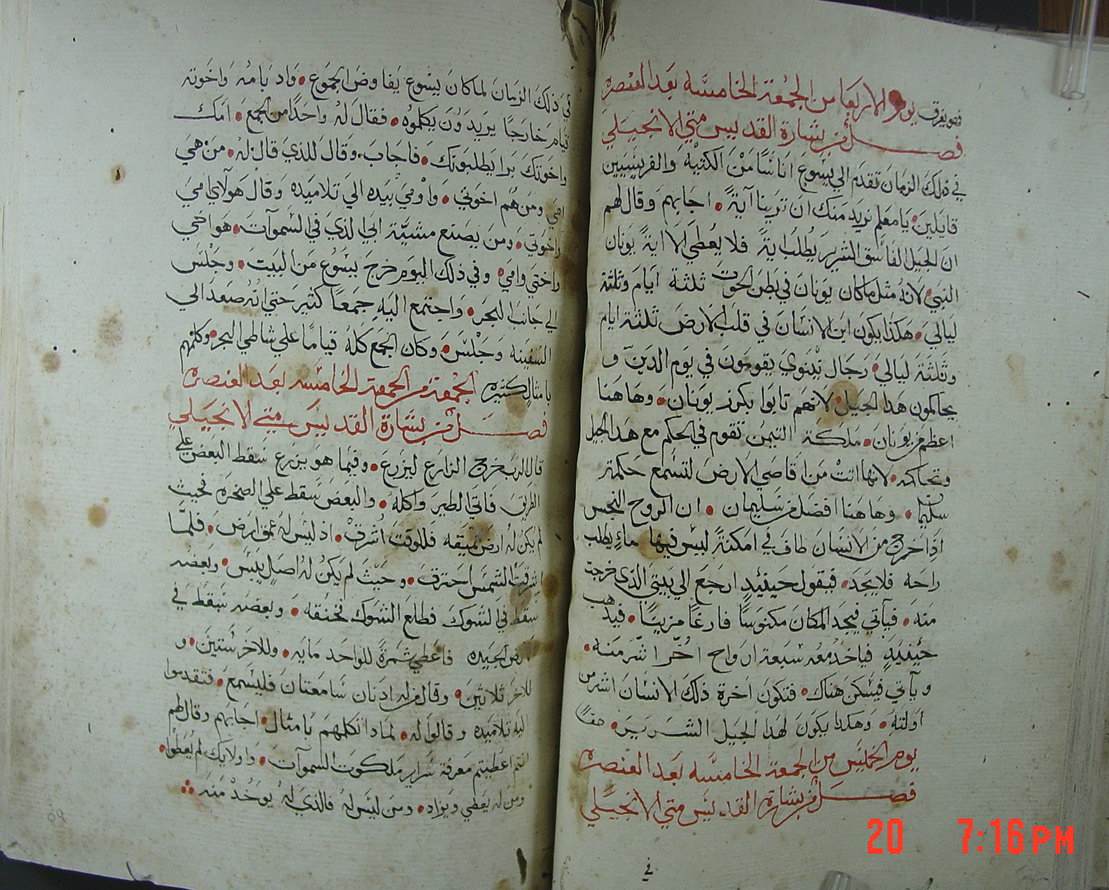 يوم الاربعا من الجمعة الخامسة بعد العنصرة
فصل من بشارة القديس متي الانجيلي
في ذلك الزمان تقدم الي يسوع اناسًا من الكتبة والفريسيين
قايلين يا معلم نريد منك ان ترينا آية. اجابهم وقال لهم
ان الجيل الفاسق الشرير يطلب اية فلا يعطي الا اية يونان
النبي. لانه مثلما كان يونان في بطن الحوت ثلثة ايام وثلثة
ليالي. هكذا يكون ابن الانسان في قلب الارض ثلثة ايام
وثلثة ليالي. رجال نينوي يقومون في يوم الدين و
يحاكمون هذا الجيل. لانهم تابوا بكرز يونان. وها هنا
اعظم من يونان. ملكة التيمن تقوم في الحكم مع هذا الجيل
وتحاكمه. لانها اتت من اقاصي الارض لتسمع حكمة
سليمان. وها هنا افضل من سليمان. ان الروح النجس
اذا خرج من الانسان طاف في امكنة ليس فيها ماء يطلب
راحة فلا يجد. فيقول حينيذ ارجع الي بيتي الذي خرجت
منه. فيآتي فيجد المكان مكنوسًا فارغًا مزينًا. فيذهب
حينيذ فياخذ معه سبعة ارواح اخر اشر منه.
وياتي فيسكن هناك. فتكون اخرة ذلك الانسان اشر من
اولته. وهكذا يكون لهذا الجيل الشرير.
يوم الخميس من الجمعة الخامسة بعد العنصرة
فصل من بشارة القديس متي الانجيلي
في
20 7:16PM
في ذلك الزمان لما كان يسوع يفاوض الجموع. واذ بامه واخوته
قيام خارجًا يريدون يكلموه. فقال له واحدًا من الجمع. امك
واخوتك برا يطلبونك. فاجاب وقال للذي قال له. من هي
امي ومن هم اخوتي. واومي بيده الي تلاميذه وقال هولاي امي
واخوتي. ومن يصنع مشيّة ابي الذي في السموات. هو اخي
واختي وامي. وفي ذلك اليوم خرج يسوع من البيت. وجلس
الي جانب البحر. واجتمع اليه جمعًا كثير حتي انه صعد الي
السفينة وجلس. وكان الجمع كله قيامًا علي شاطي البحر. وكلمهم
بامثال كثيرة. الجمعة من الجمعة الخامسة بعد العنصرة
فصل من بشارة القديس متي الانجيلي
قال الرب خرج الزارع ليزرع. وفيما هو يزرع سقط البعض علي
الطريق فاتي الطير واكله. والبعض سقط علي الصخرة بحيث
لم يكن له ارض عميقة فللوقت اشرق. اذ ليس له عمق ارض. فلما
اشرقت الشمس احترق. وحيث لم يكن له اصل يبس. وبعضه
سقط في الشوك فطلع الشوك فخنقه. وبعضه سقط في
الارض الجيدة فاعطي ثمرة للواحد مايه. وللاخر ستين. و
للاخر ثلاثين. وقال من له اذنان سامعتان فليسمع. فتقدموا
اليه تلاميذه وقالوا له. لماذا تكلمهم بامثال. اجابهم وقال لهم
انتم اعطيتم معرفة سراير ملكوت السموات. واولايك لم يعطوا.
ومن له يعطي ويزاد. ومن ليس له فالذي له يوخذ منه.